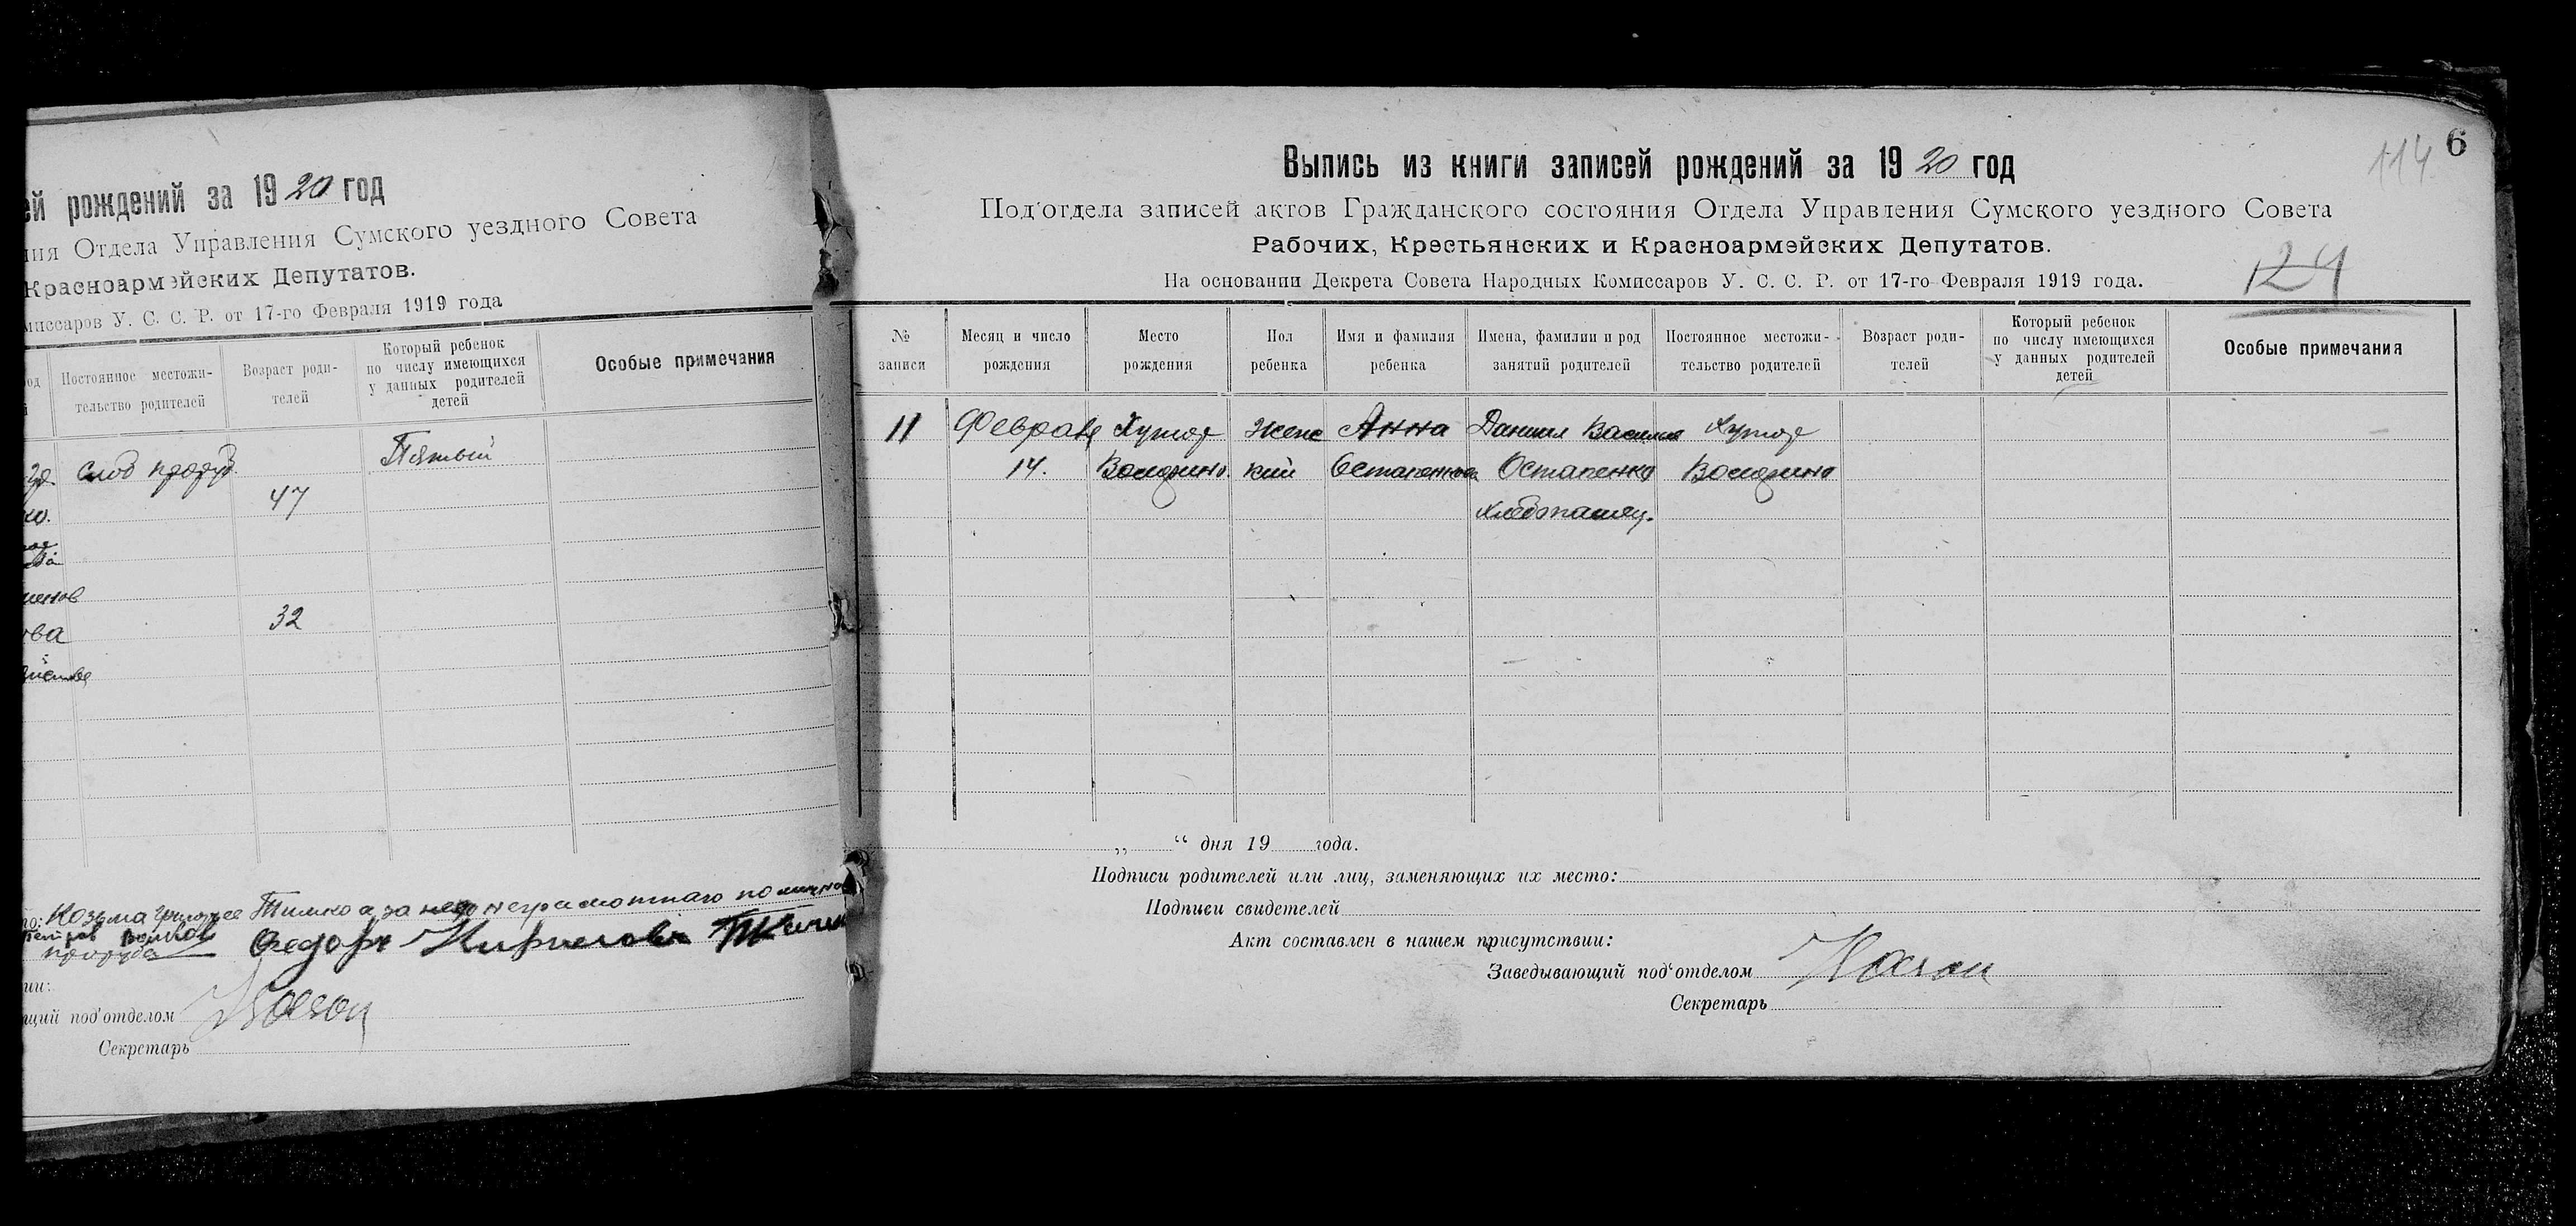 ей рождений за 1920 год
ния Отдела Управления Сумского уездного Совета
Красноармейских Депутатов.
миссаров У. С. С. Р. от 17-го Февраля 1919 года
Постоянное местожи-
тельство родителей
Возраст роди-
телей
Который ребенок
по числу имеющихся
у данных родителей
детей
Особые примечания
слоб
Пятый
47
32
ова
Козьма Тимко а за него неграмотнаго по
Федоръ
щий под'отделом
Секретарь
6
114
Выпись из книги записей рождений за 1920 год
Под'отдела записей актов Гражданского состояния Отдела Управления Сумского уездного Совета
Рабочих, Крестьянских и Красноармейских Депутатов.
На основании Декрета Совета Народных Комиссаров У. С. С. Р. от 17-го Февраля 1919 года.
124
№
записи
Месяц и число
рождения
Место
рождения
Пол
ребенка
Имя и фамилия
ребенка
Имена, фамилии и род
занятий родителей
Постоянное местожи-
тельство родителей
Возраст роди-
телей
Который ребенок
по числу имеющихся
у данных родителей
детей
Особые примечания
11 Февраля Хутор Женс Анна Даниил Васильев Хутор
14. кий Остапенкова Остапенко
хлебопашец.
„ “ дня 19 года.
Подписи родителей или лиц, заменяющих их место:
Подписи свидетелей
Акт составлен в нашем присутствии:
Заведывающий под'отделом
Секретарь